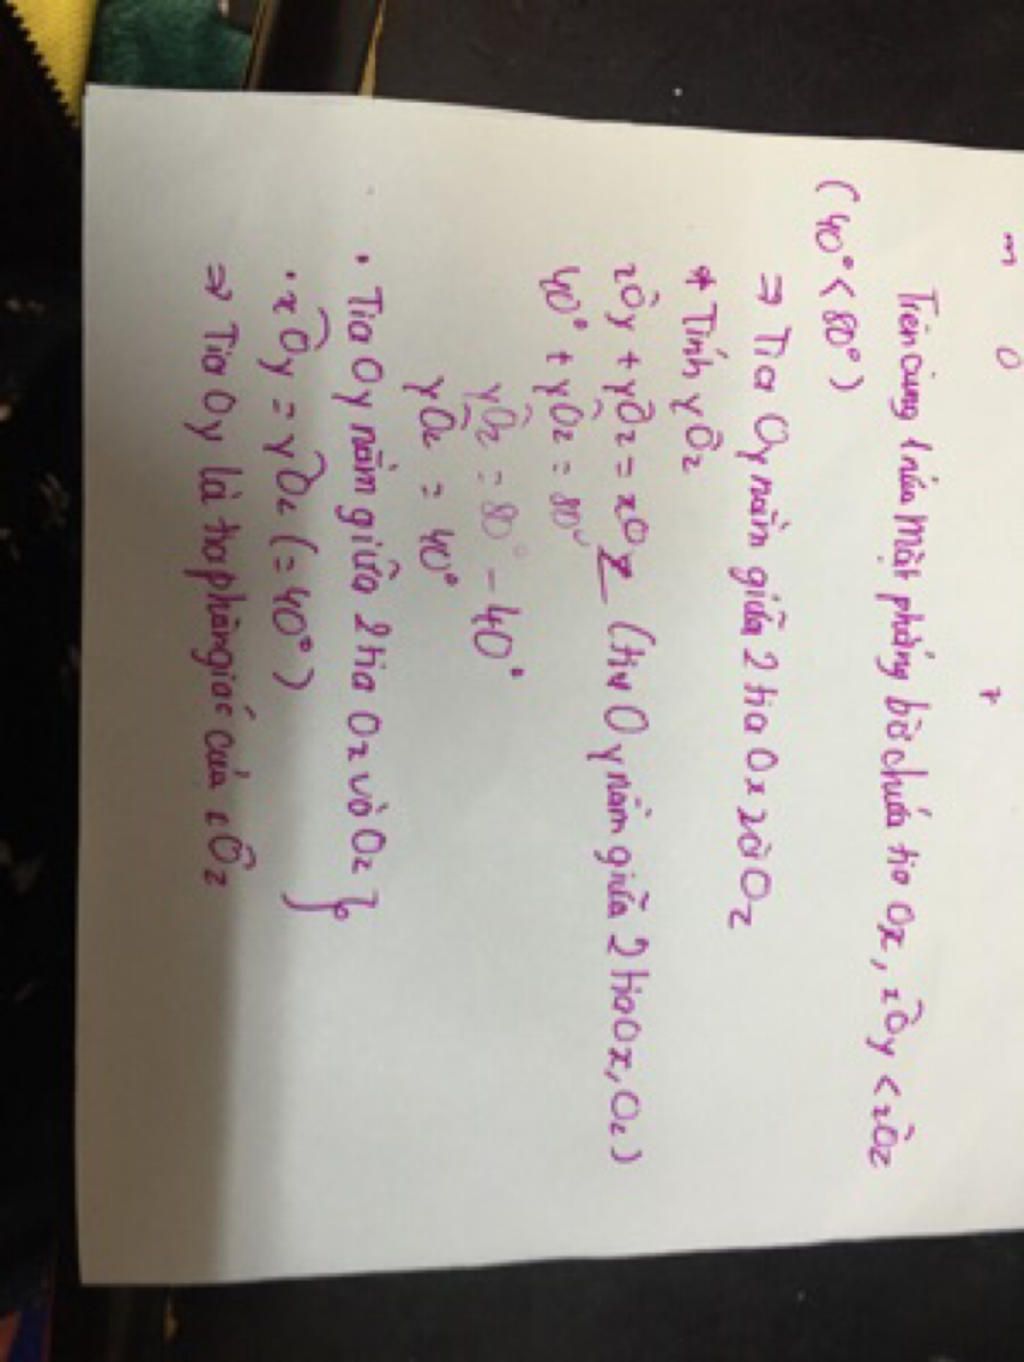 m O x
Trên cùng 1 nửa mặt phẳng bờ chứa tia Ox, xÔy < xÔz
(40° < 80°)
⇒ Tia Oy nằm giữa 2 tia Ox và Oz
* Tính yÔz
xÔy + yÔz = xÔz (tia Oy nằm giữa 2 tia Ox, Oz)
40° + yÔz = 80°
yÔz = 80° - 40°
yÔz = 40°
• Tia Oy nằm giữa 2 tia Ox và Oz }
• xÔy = yÔz (= 40°)
⇒ Tia Oy là tia phân giác của xÔz